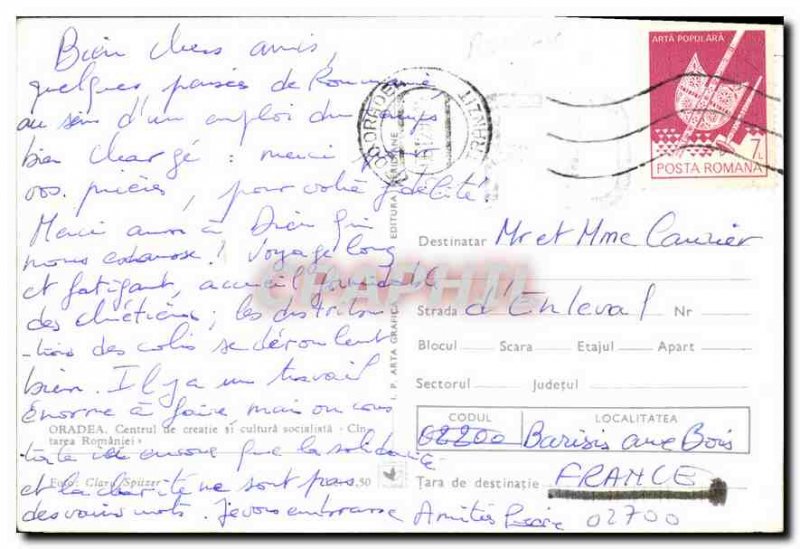 Bien chers amis,
quelques pensées de Roumanie
au sein d'un emploi du temps
bien chargé : merci pour
vos prières, pour votre fidélité.
Merci aussi à Dieu qui
nous exhausse ! Voyage long
et fatigant, accueil formidable
des chrétiens ; les distribu
tions des colis se déroulent
bien. Il y a un travail
énorme à faire mais on cons
tate ici encore que la solidarité
et la charité ne sont pas
des vains mots. Je vous embrasse
Amitiés
ORADEA. Centrul de creație și cultură socialistă «Cîn-
tarea României»
Foto: Clara Spitzer
I. P. ARTA GRAFICĂ
EDITURA MERIDIANE
ORADEA
ARTĂ POPULARĂ
7L
POSTA ROMANA
Destinatar Mr et Mme
Strada d'Enleval Nr
Blocul Scara Etajul Apart
Sectorul Județul
CODUL LOCALITATEA
02200 Barisis aux Bois
Țara de destinație FRANCE
02700
CPAPHIL